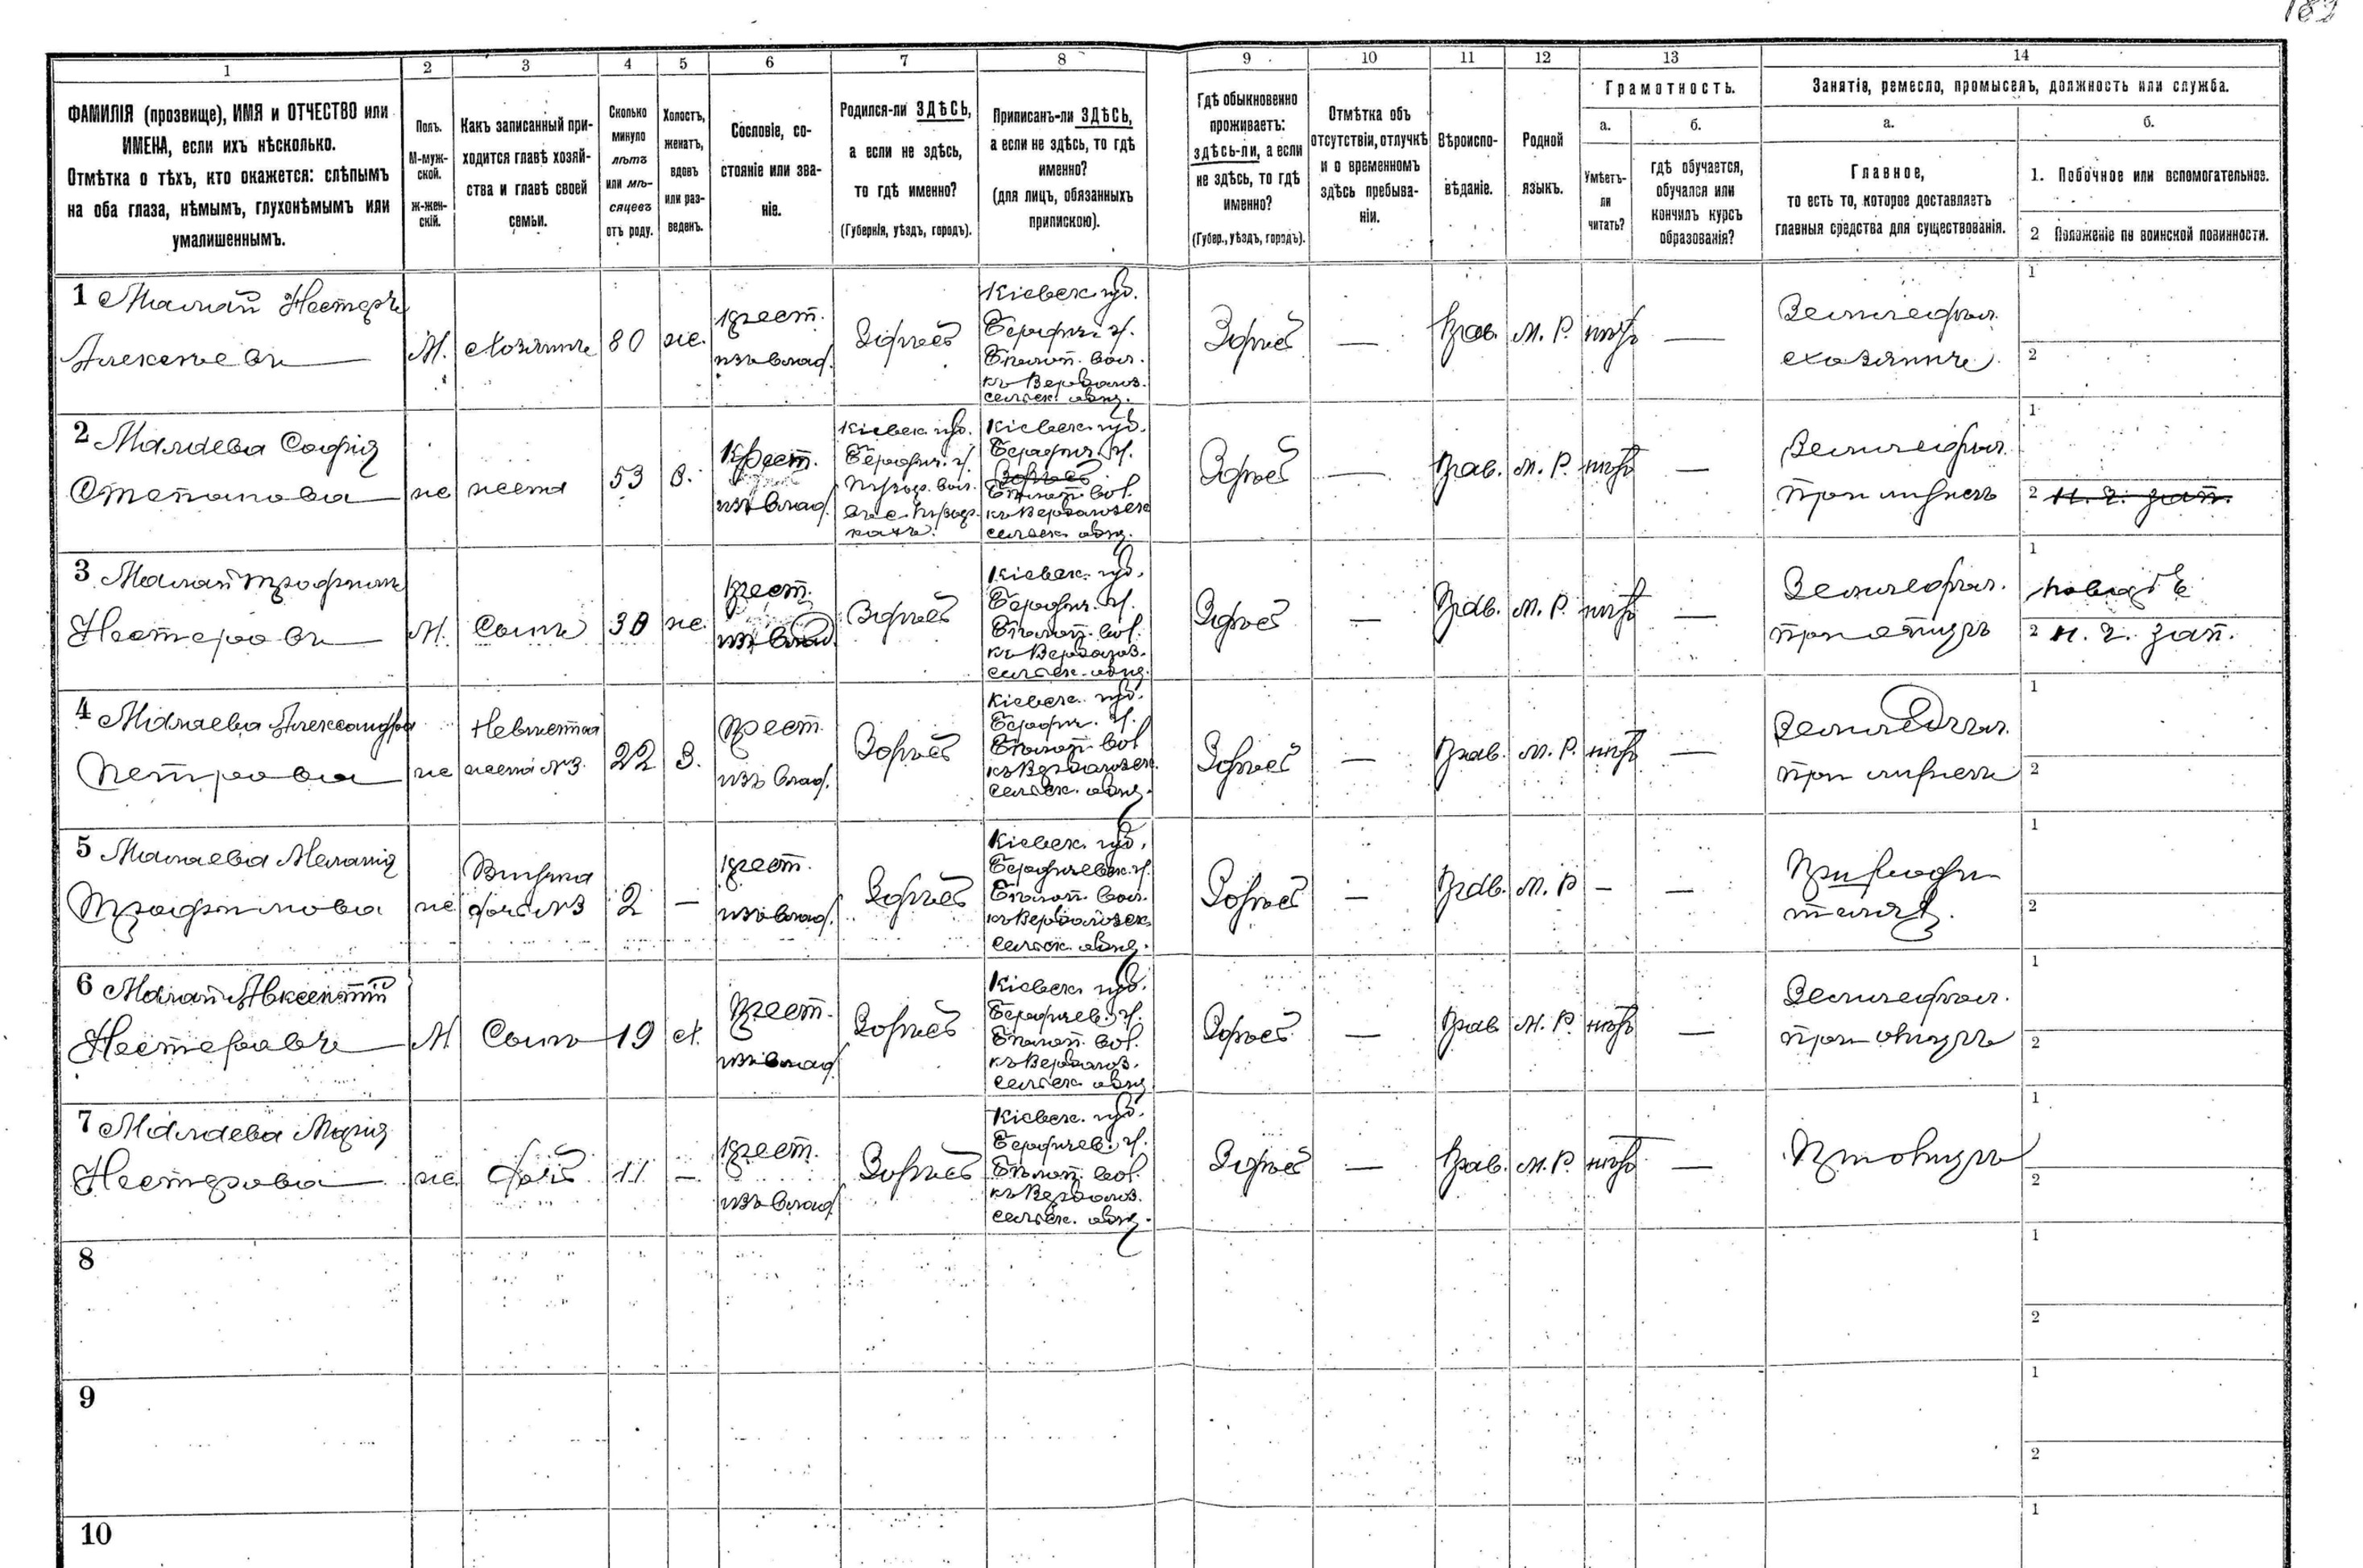 182
1 2 3 4 5 6 7 8 9 10 11 12 13 14
ФАМИЛІЯ (прозвище), ИМЯ и ОТЧЕСТВО или
ИМЕНА, если ихъ нѣсколько.
Отмѣтка о тѣхъ, кто окажется: слѣпымъ
на оба глаза, нѣмымъ, глухонѣмымъ или
умалишеннымъ.
Полъ.
М-муж-
ской.
ж-жен-
скій.
Какъ записанный при-
ходится главѣ хозяй-
ства и главѣ своей
семьи.
Сколько
минуло
лѣтъ
или мѣ-
сяцевъ
отъ роду.
Холостъ,
женатъ,
вдовъ
или раз-
веденъ.
Сословіе, со-
стояніе или зва-
ніе.
Родился-ли ЗДѢСЬ,
а если не здѣсь,
то гдѣ именно?
(Губернія, уѣздъ, городъ).
Приписанъ-ли ЗДѢСЬ,
а если не здѣсь, то гдѣ
именно?
(для лицъ, обязанныхъ
припискою).
Гдѣ обыкновенно
проживаетъ:
здѣсь-ли, а если
не здѣсь, то гдѣ
именно?
(Губер., уѣздъ, городъ).
Отмѣтка объ
отсутствіи, отлучкѣ
и о временномъ
здѣсь пребыва-
ніи.
Вѣроиспо-
вѣданіе.
Родной
языкъ.
Грамотность.
а.
Умѣетъ-
ли
читать?
б.
гдѣ обучается,
обучался или
кончилъ курсъ
образованія?
Занятія, ремесло, промыселъ, должность или служба.
а.
Главное,
то есть то, которое доставляетъ
главныя средства для существованія.
б.
1. Побочное или вспомогательное.
2 Положеніе по воинской повинности.
1 Малай Нестеръ
Алексѣевъ
М.
Хозяинъ
80
же.
крест.
изъ влад.
Здѣсь
Кіевск. губ.
Бердич. у.
Бѣлоп. вол.
къ Вербовоз.
сельск. общ.
Здѣсь
—
Прав.
М. Р.
нѣтъ
—
Земледѣл.
хозяинъ
1
2
2 Малаева Софія
Степанова
же
жена
53
З.
Крест.
изъ влад.
Кіевск. губ.
Бердич. у.
Кіевск. губ.
Бердич. у.
Здѣсь
Бѣлоп. вол.
сельск. общ.
Здѣсь
—
Прав.
М. Р.
нѣтъ
—
Земледѣл.
при мужѣ
1
2 н. ч. зап.
3 Малай Трофимъ
Нестеровъ
М.
Сынъ
30
же.
крест.
изъ влад.
Здѣсь
Кіевск. губ.
Бердич. у.
Бѣлоп. вол.
сельск. общ.
Здѣсь
—
Прав.
М. Р.
нѣтъ
—
Земледѣл.
при отцѣ
1
2 н. ч. зап.
4 Малаева Александра
Петрова
же
Невѣстка
жена №3.
22
З.
крест.
изъ влад.
Здѣсь
Кіевск. губ.
Бердич. у.
Бѣлоп. вол.
сельск. общ.
Здѣсь
—
Прав.
М. Р.
нѣтъ
—
Земледѣл.
при мужѣ
1
2
5 Малаева Меланія
Трофимова
же
Внучка
дочь №3
2
—
крест.
изъ влад.
Здѣсь
Кіевск. губ.
Бердичевск. у.
Бѣлоп. вол.
сельск. общ.
Здѣсь
—
Прав.
М. Р
—
—
При роди-
теляхъ.
1
2
6 Малай Авксентій
Нестеровъ
М
Сынъ
19
х.
крест.
изъ влад.
Здѣсь
Кіевск. губ.
Бердичев. у.
Бѣлоп. вол.
сельск. общ.
Здѣсь
—
Прав
М. Р.
нѣтъ
—
Земледѣл.
при отцѣ
1
2
7 Малаева Марія
Нестерова
же
дочь
11
—
крест.
изъ влад.
Здѣсь
Кіевск. губ.
Бердичев. у.
Бѣлоп. вол.
сельск. общ.
Здѣсь
—
Прав.
М. Р.
нѣтъ
—
При отцѣ
1
2
8
1
2
9
1
2
10
1